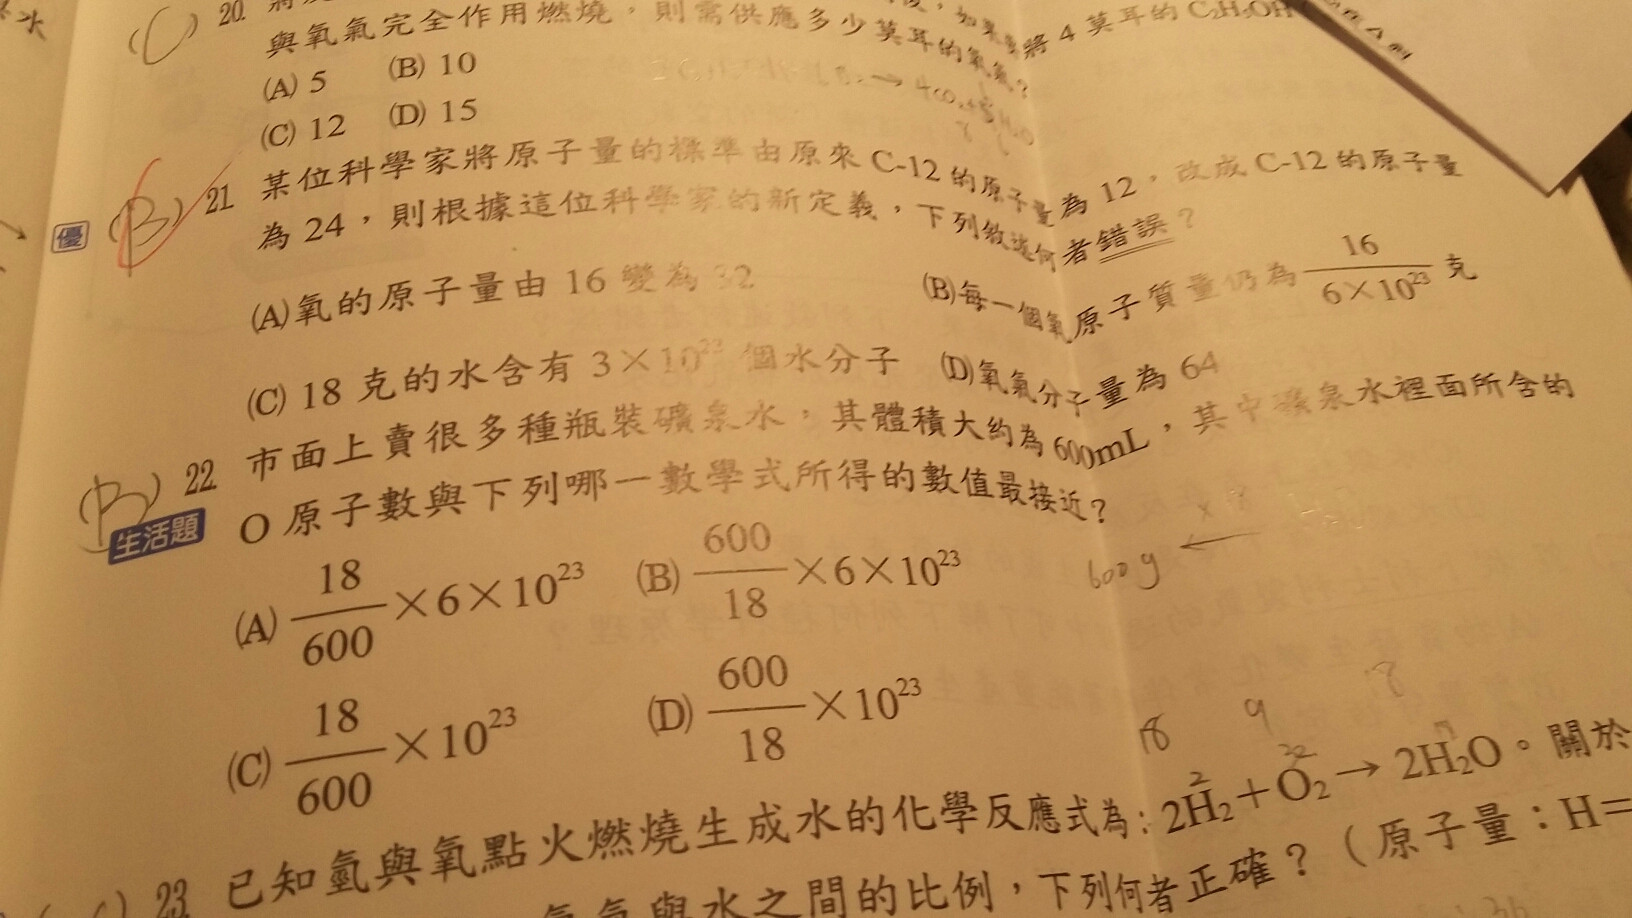 (C) 20.
與氧氣完全作用燃燒，則需供應多少莫耳的氧氣？ 將 4 莫耳的 C₂H₅OH
(A) 5 (B) 10
(C) 12 (D) 15
優 (B) 21 某位科學家將原子量的標準由原來 C-12 的原子量為 12，改成 C-12 的原子量
為 24，則根據這位科學家的新定義，下列敘述何者錯誤？
(A) 氧的原子量由 16 變為 32 (B) 每一個氧原子質量仍為 16/(6×10²³) 克
(C) 18 克的水含有 3×10²³ 個水分子 (D) 氧氣分子量為 64
(B) 22 市面上賣很多種瓶裝礦泉水，其體積大約為 600mL，其中礦泉水裡面所含的
生活題 O 原子數與下列哪一數學式所得的數值最接近？
600 g ←
(A) 18/600 ×6×10²³ (B) 600/18 ×6×10²³
(C) 18/600 ×10²³ (D) 600/18 ×10²³
18 9
2 32
23 已知氫與氧點火燃燒生成水的化學反應式為：2H₂＋O₂→ 2H₂O。關於
與水之間的比例，下列何者正確？（原子量：H＝